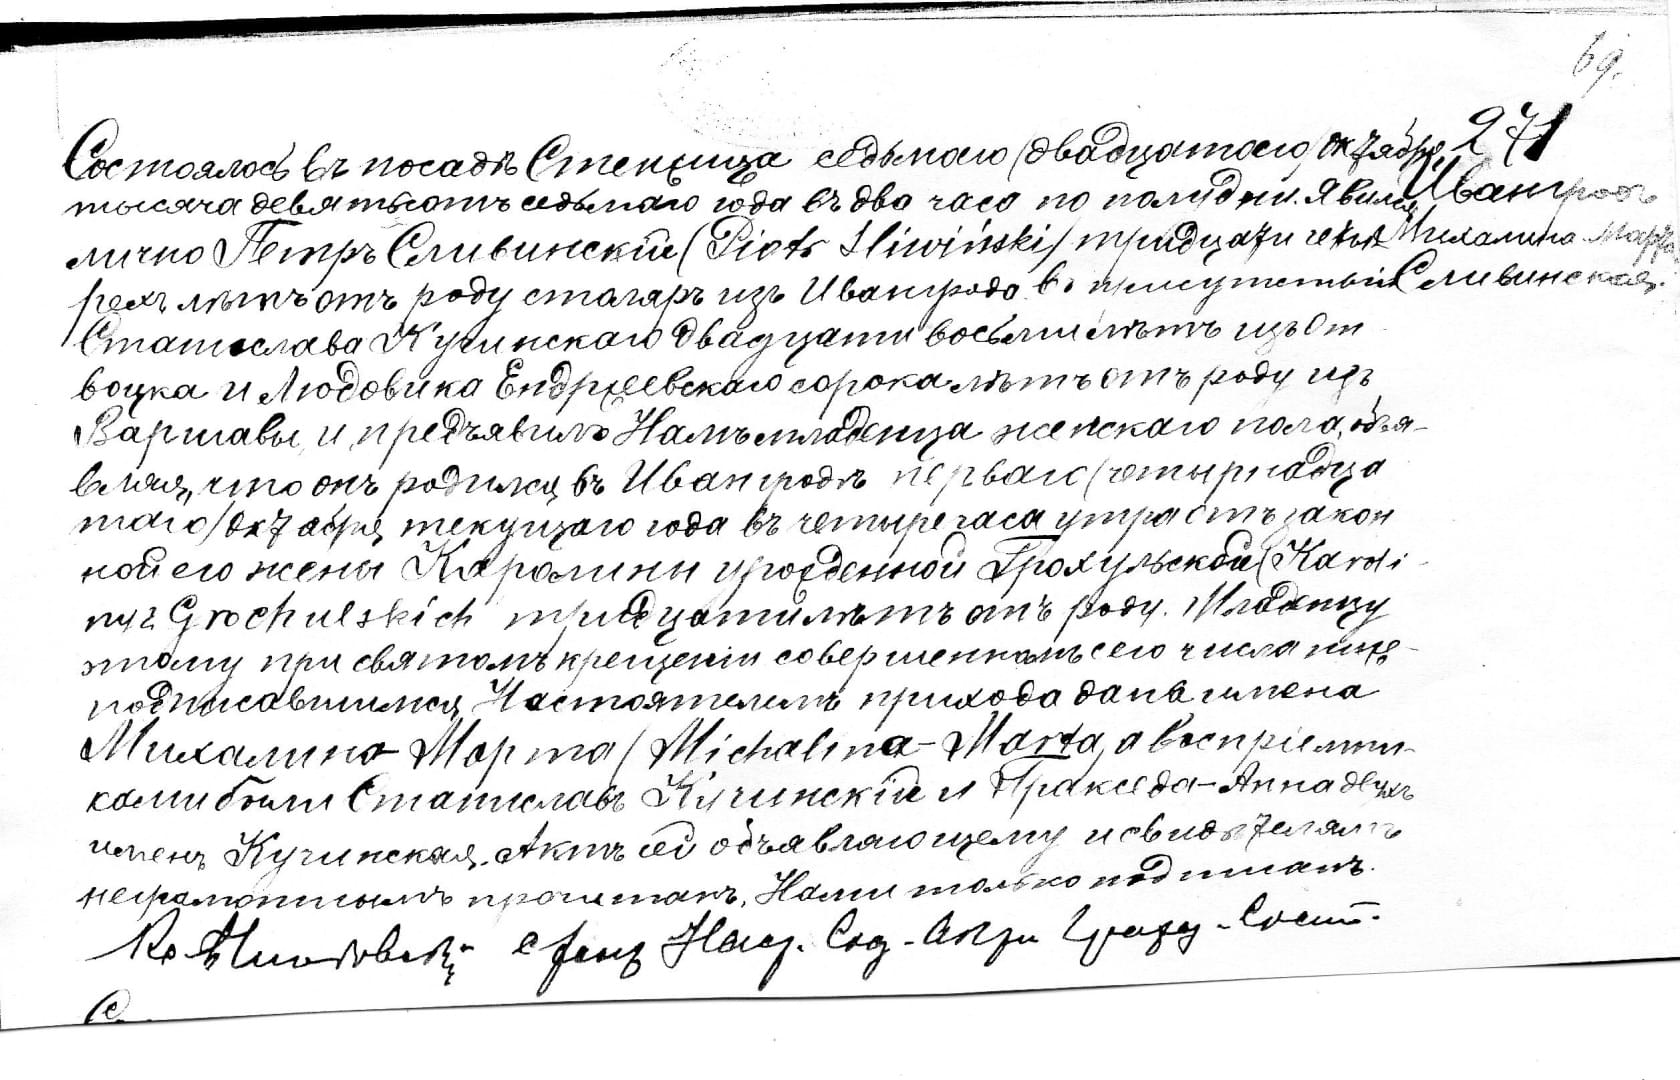 69.
271
Ивангродъ
Михалина Марта
Сливинская.
Состоялось въ посадѣ Стенжица седьмаго (двадцатаго) октября
тысяча девятьсотъ седьмаго года въ два часа по полудни. Явился
лично Петръ Сливинскій (Piotr Sliwiński) тридцати четы
рехъ лѣтъ отъ роду столяръ изъ Ивангрода въ присутствіи
Станислава Кучинскаго двадцати восьми лѣтъ изъ От
воцка и Людовика Ендржеевскаго сорока лѣтъ отъ роду изъ
Варшавы, и предъявилъ Намъ младенца женскаго пола, объя-
вляя, что онъ родился въ Ивангродѣ перваго (четырнадца
таго) октября текущаго года въ четыре часа утра отъ закон
ной его жены Каролины урожденной Грохульской (Karoli-
ny z Grochulskich тридцати лѣтъ отъ роду. Младенцу
этому при святомъ крещеніи совершенномъ сего числа ниже-
подписавшимся Настоятелемъ прихода даны имена
Михалина-Марта (Michalina-Marta, а воспріемни-
ками были Станиславъ Кучинскій и Пракседа-Анна двухъ
именъ Кучинская. Актъ сей объявляющему и свидѣтелямъ
неграмотнымъ прочитанъ, Нами только подписанъ.
Наст. Сод. Акты Гражд. Сост.